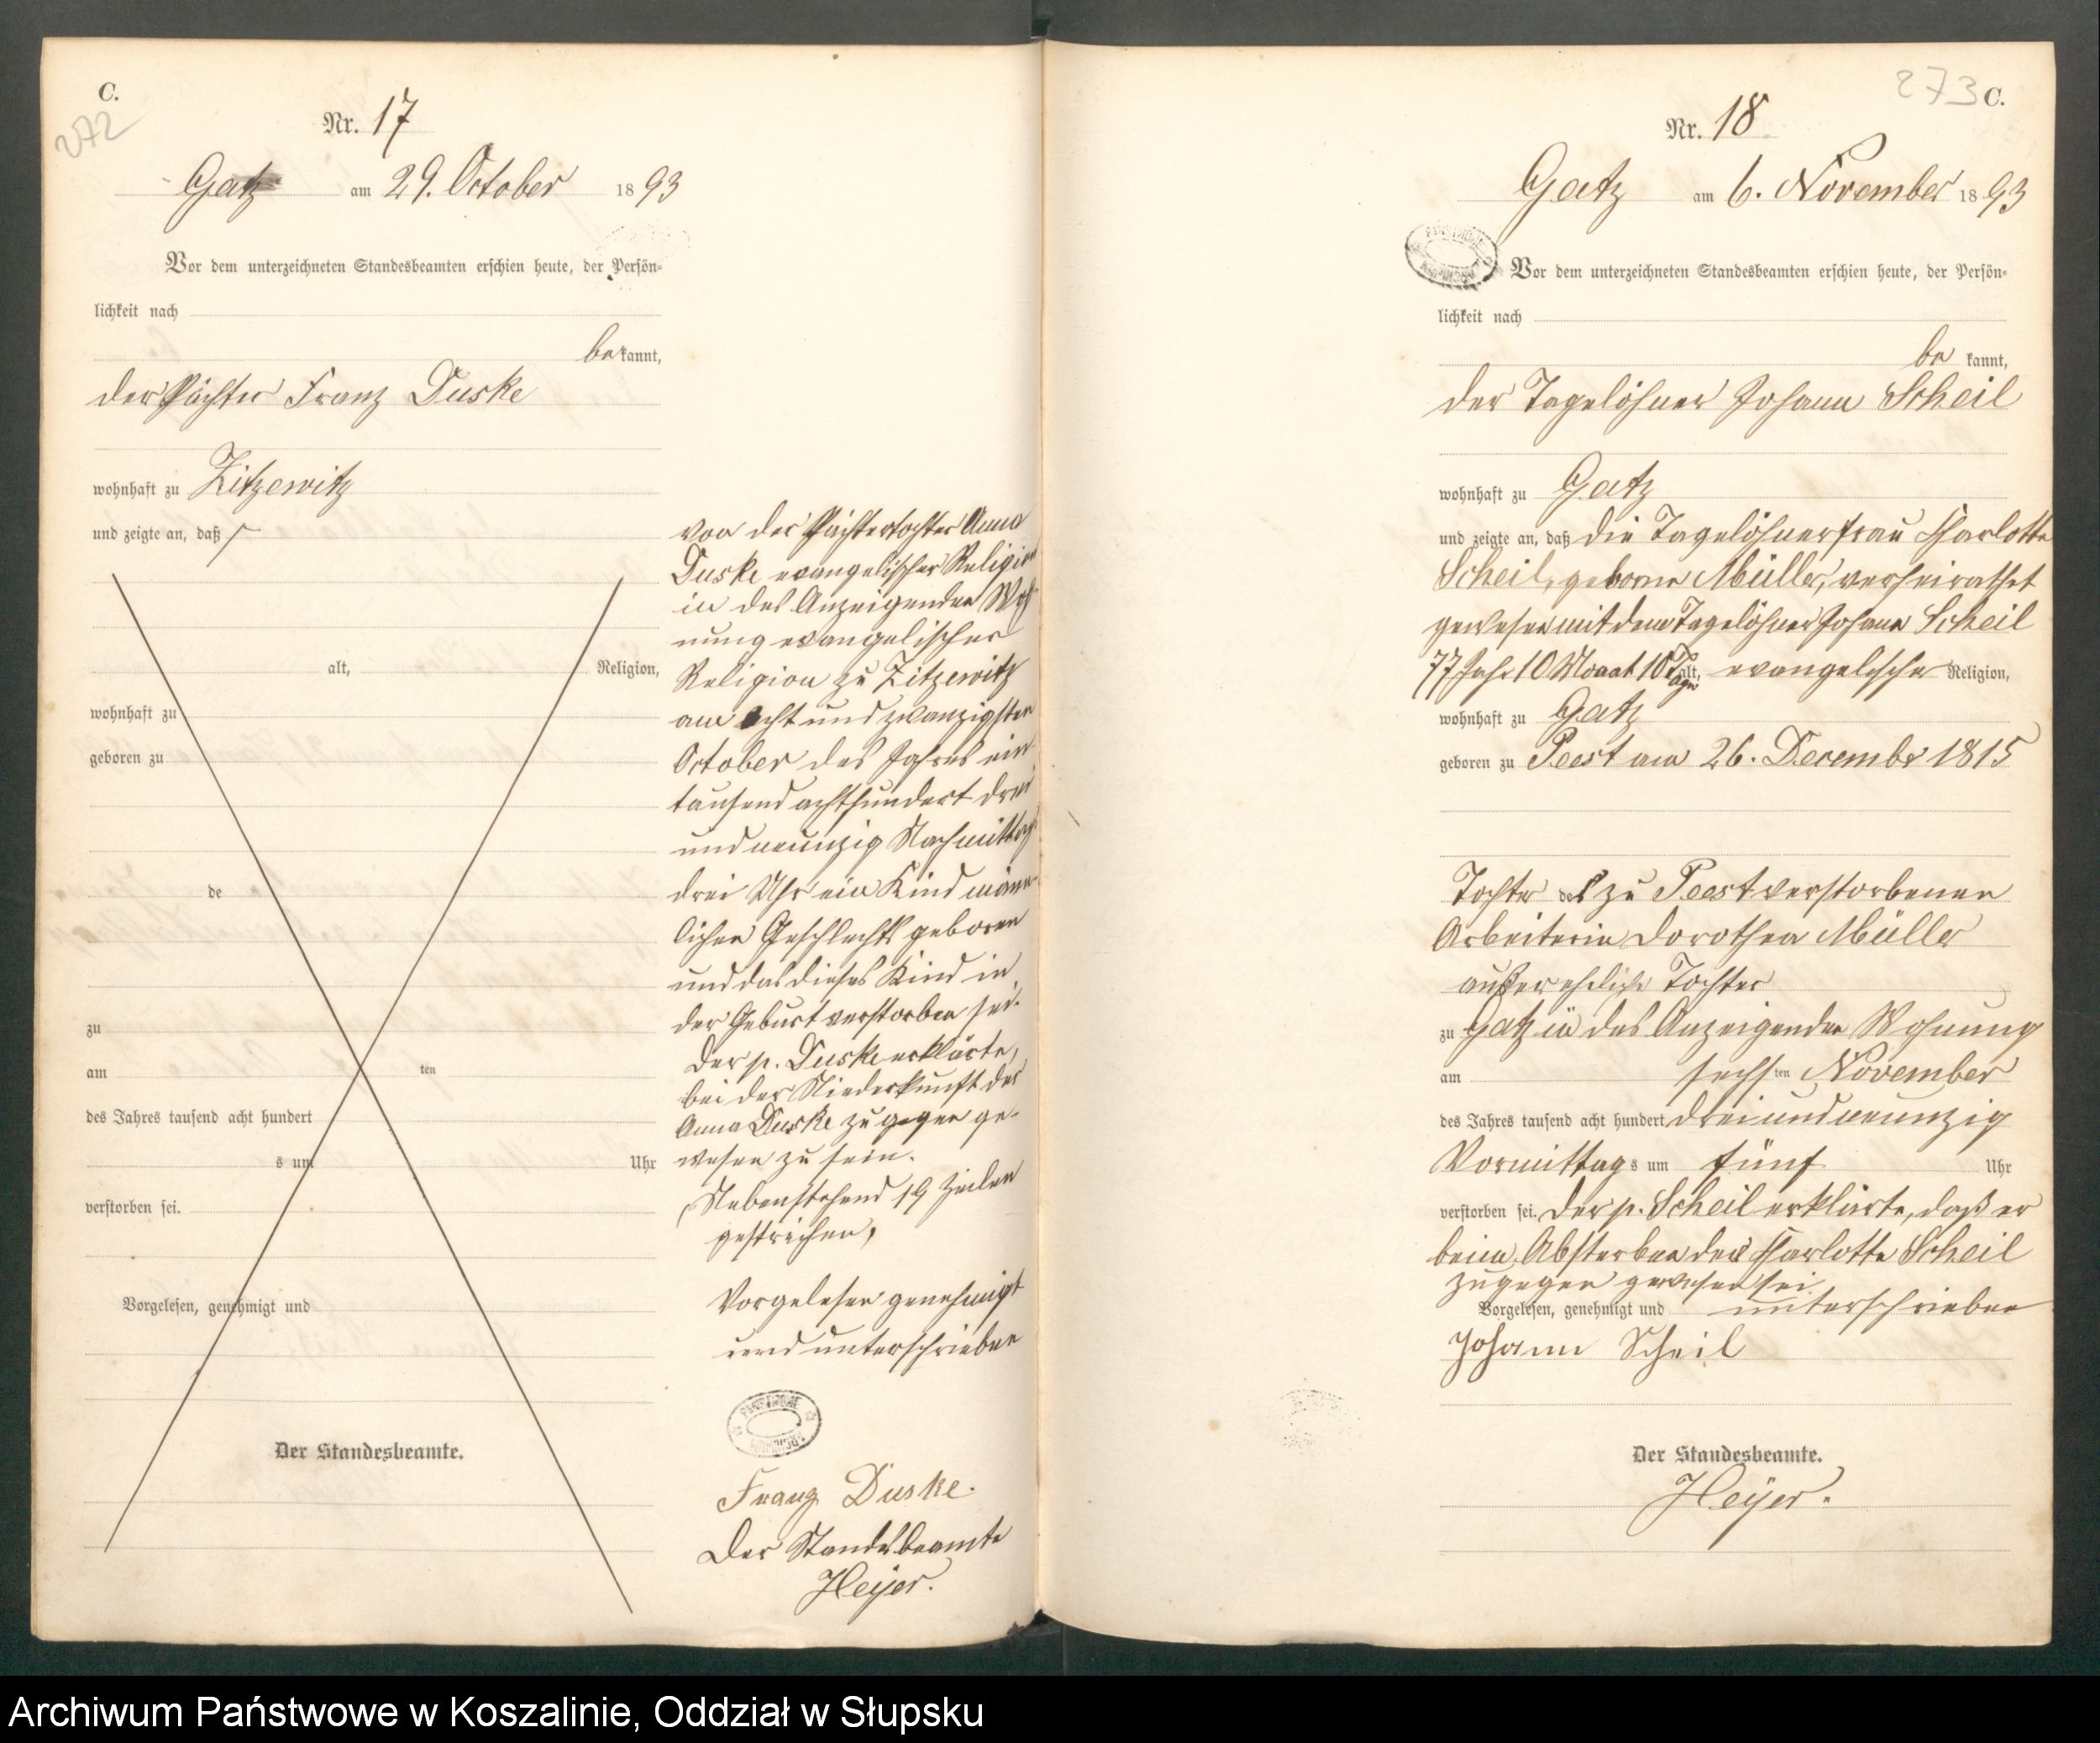 C.
272
Nr. 17
Gatz am 29. October 1893
Vor dem unterzeichneten Standesbeamten erschien heute, der Persön-
lichkeit nach
bekannt,
der Pächter Franz Duske
wohnhaft zu Zitzewitz
und zeigte an, daß
alt, Religion,
wohnhaft zu
geboren zu
de
zu
am ten
des Jahres tausend acht hundert
s um Uhr
verstorben sei.
Vorgelesen, genehmigt und
Der Standesbeamte.
von der Pächtertochter Anna
Duske evangelischer Religion
in des Anzeigenden Woh
nung evangelischer
Religion zu Zitzewitz
am acht und zwanzigsten
October des Jahres ein
tausend achthundert drei
und neunzig Nachmittags
drei Uhr ein Kind männ-
lichen Geschlechts geboren
und das dieses Kind in
der Geburt verstorben sei.
Der p. Duske erklärte,
bei der Niederkunft der
Anna Duske zugegen ge-
wesen zu sein.
Nebenstehend 19 Zeilen
gestrichen,
Vorgelesen genehmigt
und unterschrieben
Franz Duske.
Der Standesbeamte
Heyer.
273 C.
Nr. 18
Gatz am 6. November 1893
Vor dem unterzeichneten Standesbeamten erschien heute, der Persön-
lichkeit nach
be kannt,
der Tagelöhner Johann Scheil
wohnhaft zu Gatz
und zeigte an, daß die Tagelöhnerfrau Charlotte
Scheil, geborne Müller, verheirathet
gewesen mit dem Tagelöhner Johann Scheil
77 Jahr 10 Monat 10 Tage alt, evangelischer Religion,
wohnhaft zu Gatz
geboren zu Peest am 26. December 1815
Tochter der zu Peest verstorbenen
Arbeiterin Dorothea Müller
außereheliche Tochter
zu Gatz in des Anzeigenden Wohnung
am sechsten November
des Jahres tausend acht hundert dreiundneunzig
Vormittags um fünf Uhr
verstorben sei. Der p. Scheil erklärte, daß er
beim Absterben der Charlotte Scheil
zugegen gewesen sei.
Vorgelesen, genehmigt und unterschrieben
Johann Scheil
Der Standesbeamte.
Heyer.
Archiwum Państwowe w Koszalinie, Oddział w Słupsku